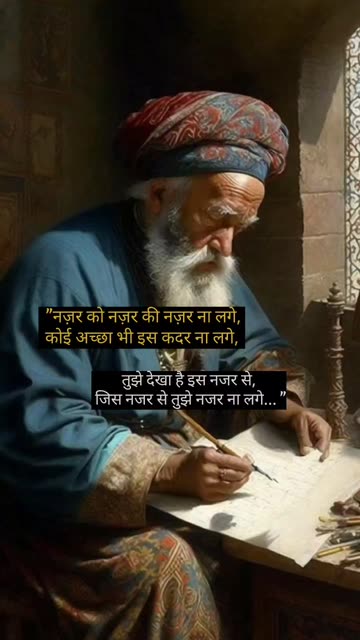 "नज़र को नज़र की नज़र ना लगे,
कोई अच्छा भी इस कदर ना लगे,
तुझे देखा है इस नजर से,
जिस नजर से तुझे नजर ना लगे... "